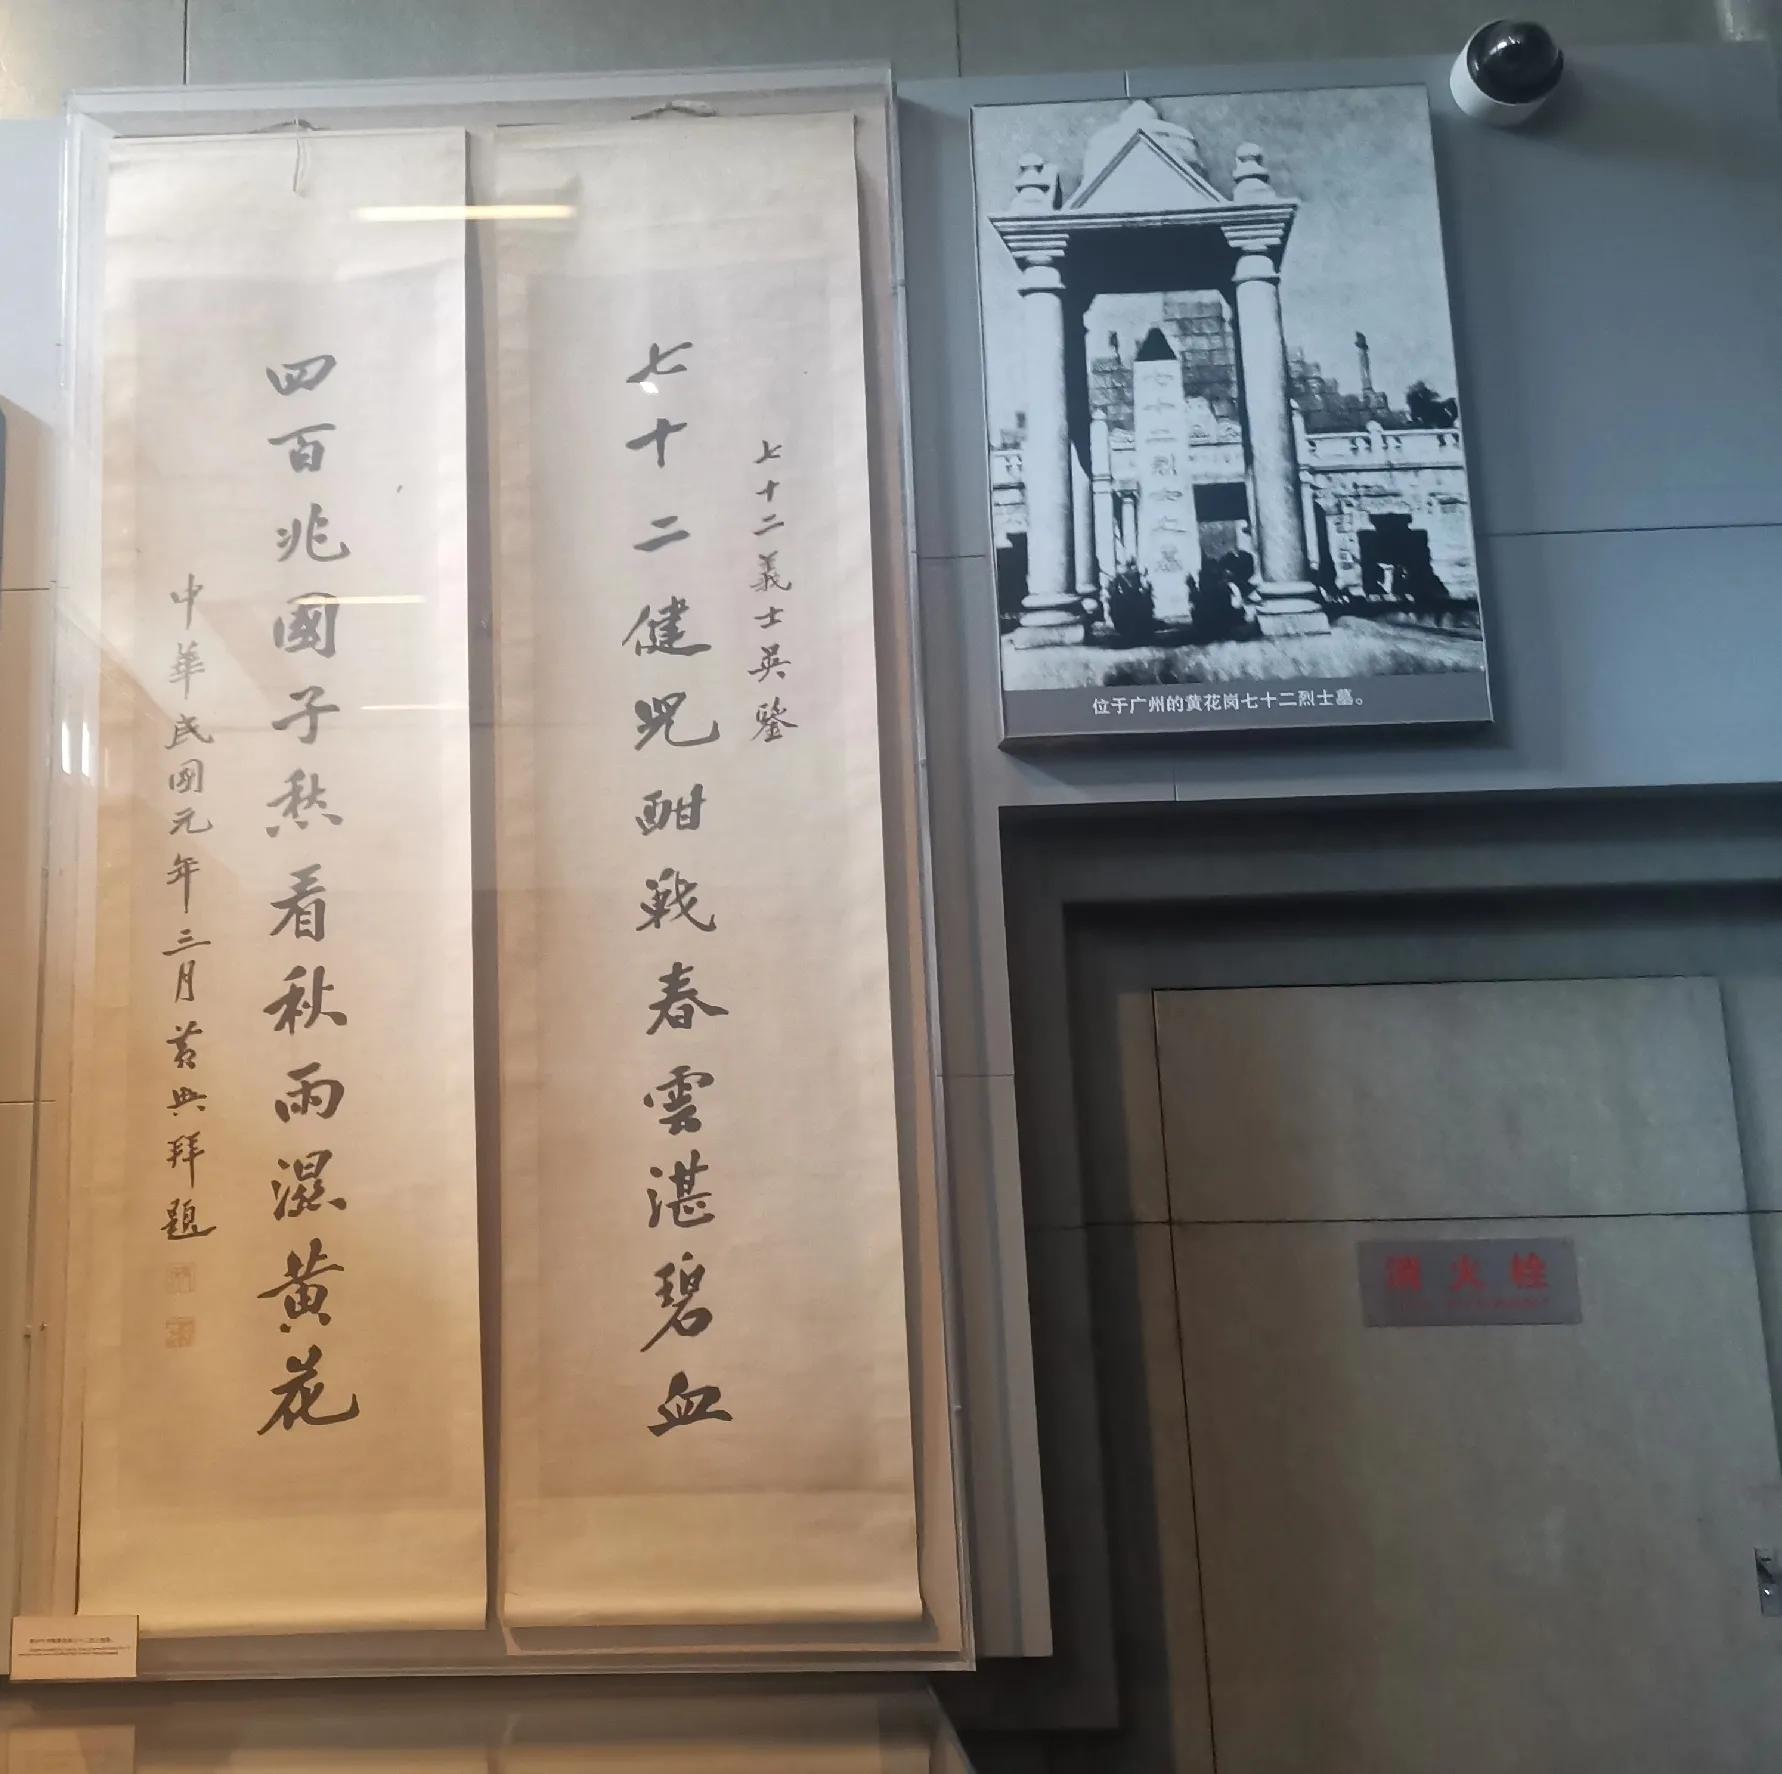 七十二義士英鑒
七十二健児酣戦春雲湛碧血
四百兆國子愁看秋雨濕黄花
中華民國元年三月黄興拜題
七十二烈士之墓
位于广州的黄花岗七十二烈士墓。
消火栓